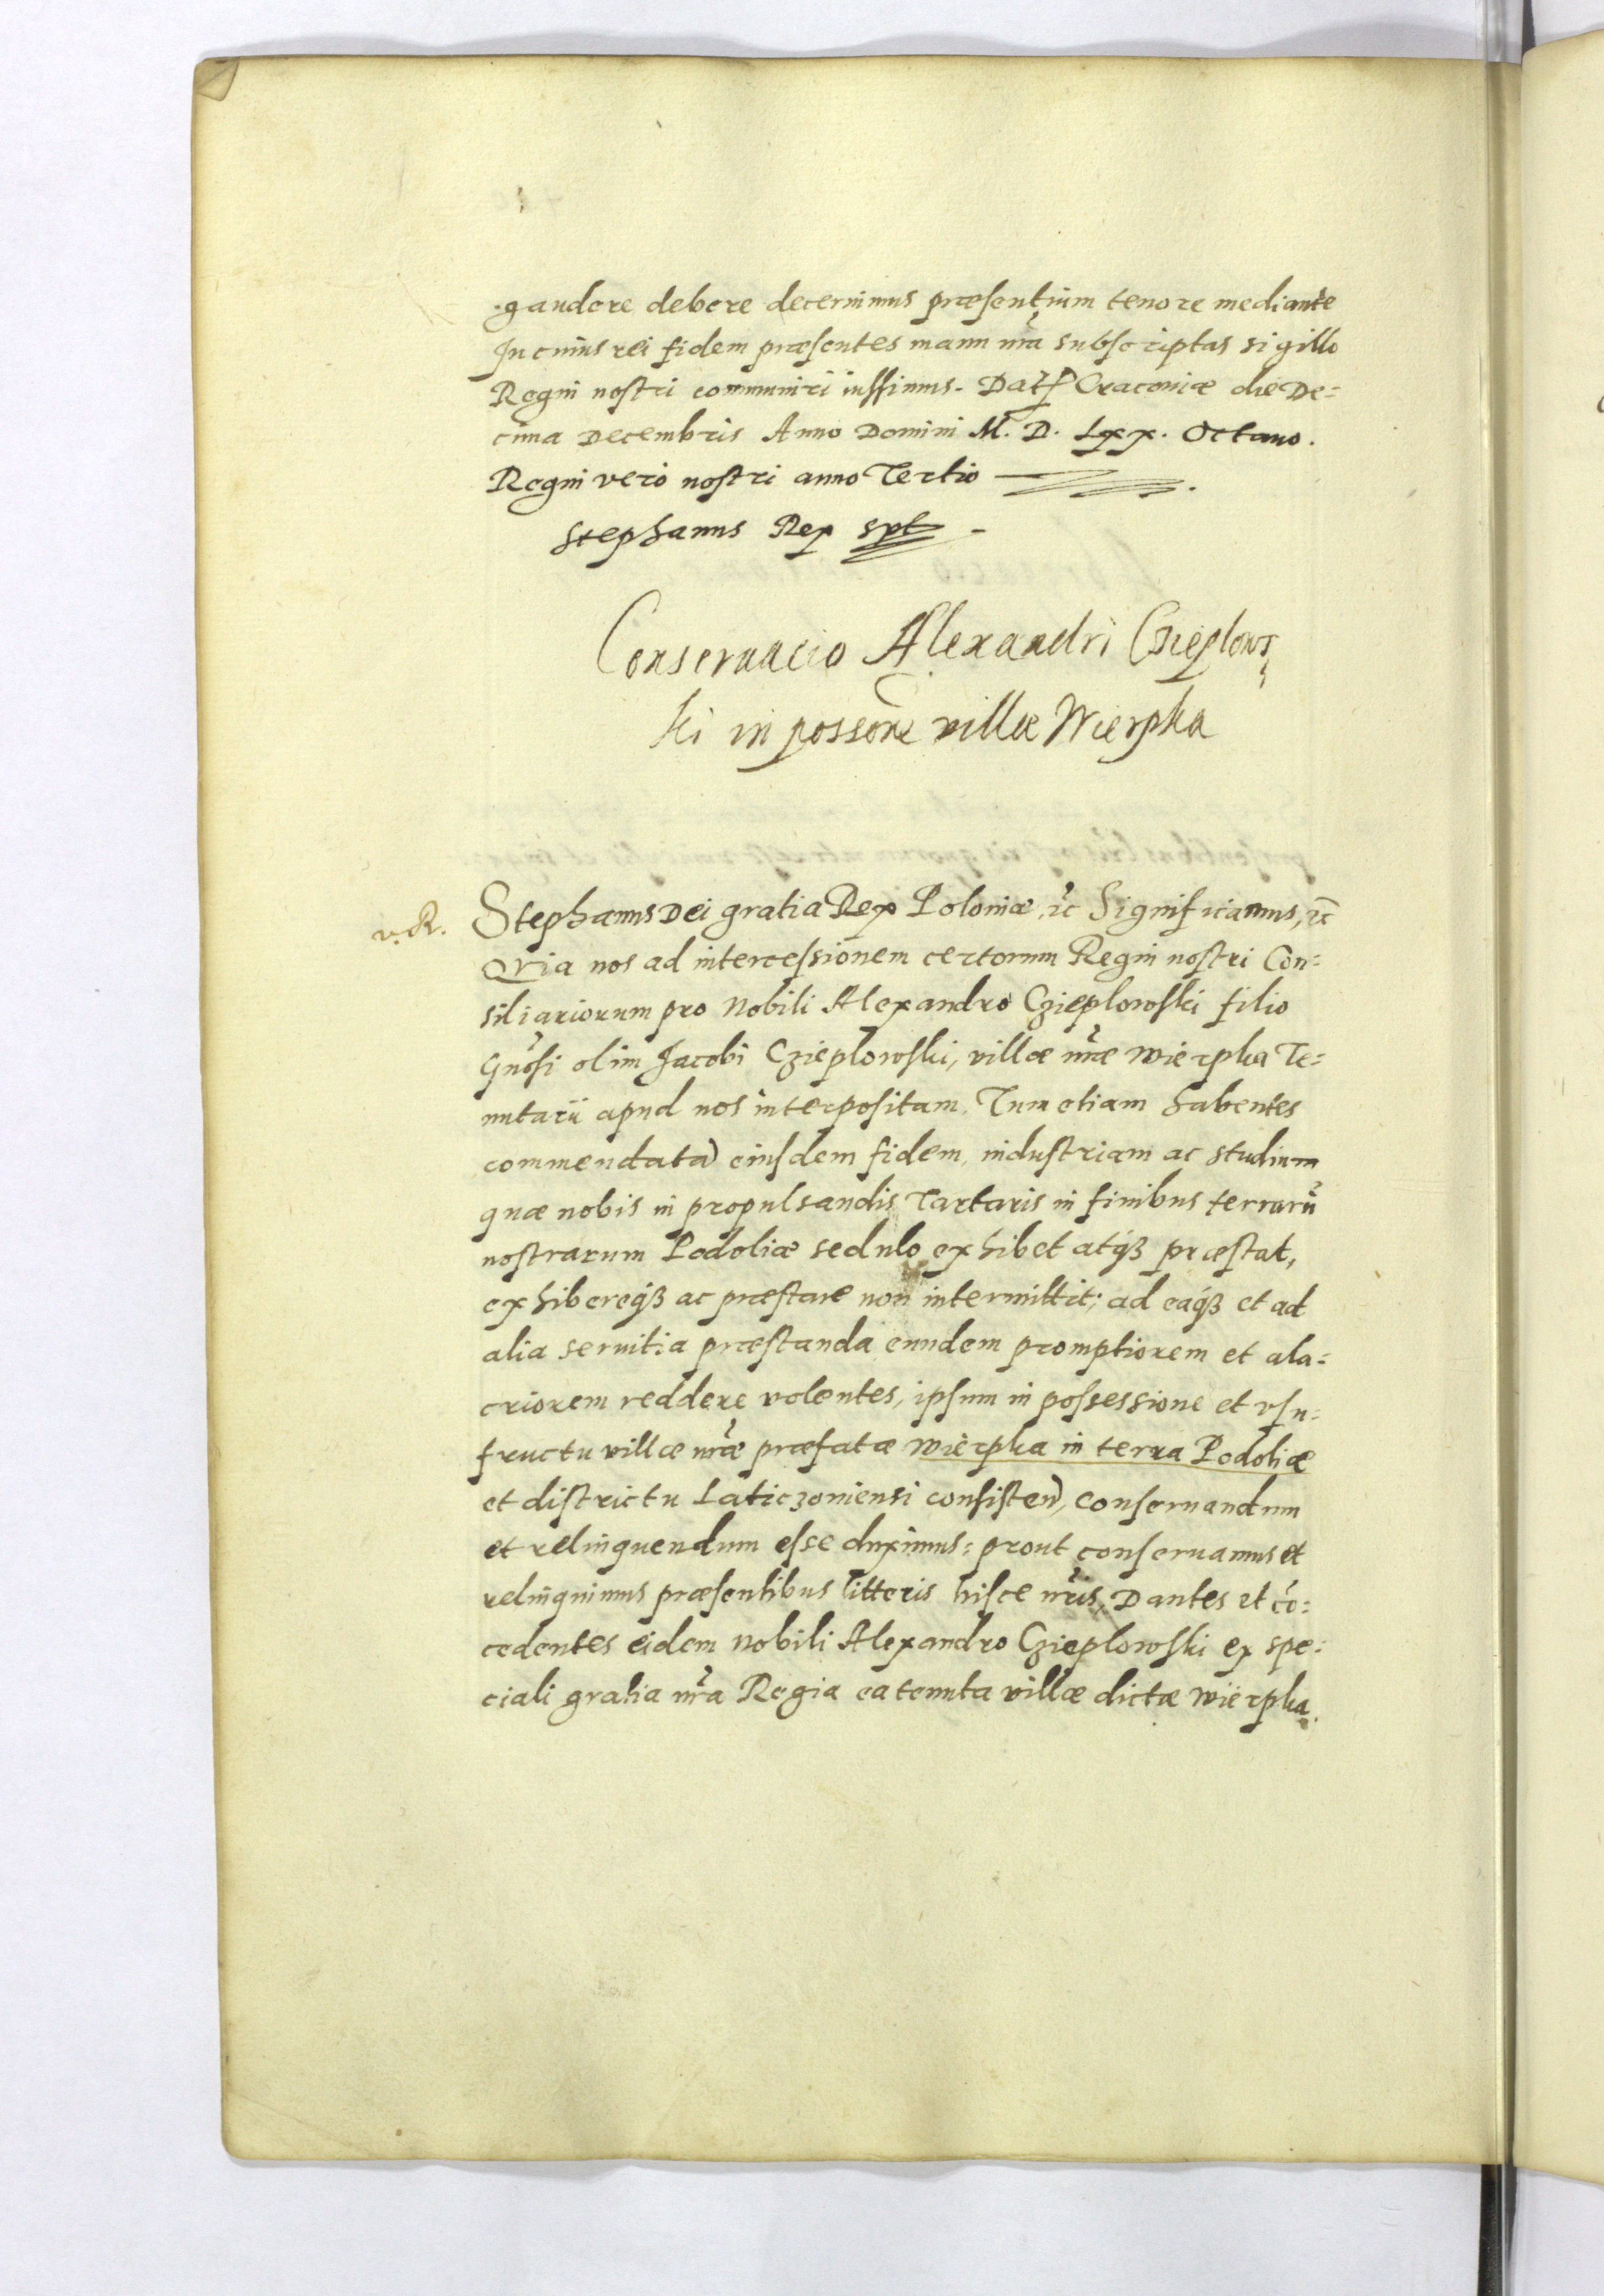 gaudere debere decernimus præsentium tenore mediante
In cuius rei fidem præsentes manu nr̃a subscriptas sigillo
Regni nostri communiri iussimus. Dat Cracoviæ die De=
cima Decembris Anno Domini M. D. Lxx. Octavo.
Regni vero nostri anno Tertio
Stephanus Rex spt
Conservacio Alexandri Czieplows
ki in possone villæ Wierpka
v. R.
Stephanus Dei gratia Rex Poloniæ, &c Significamus, &c
Qvia nos ad intercessionem certorum Regni nostri Con=
siliariorum pro Nobili Alexandro Czieplowski filio
Gnosi olim Jacobi Cziepłowski, villæ nr̃æ Wierpka Te=
nutarii apud nos interpositam, Tum etiam habentes
commendatã eiusdem fidem, industriam ac studium
quæ nobis in propulsandis Tartaris in finibus terrarũ
nostrarum Podoliæ sedulo exhibet atq3 præstat,
exhibereq3 ac præstare non intermittit; ad eaq3 et ad
alia servitia præstanda eundem promptiorem et ala=
criorem reddere volentes, ipsum in possessione et usu=
fructu villæ nr̃æ præfatæ Wierpka in terra Podoliæ
et districtu Laticzoviensi consisteñ, conservandum
et relinquendum esse duximus: prout conservamus et
relinquimus præsentibus litteris hisce nr̃is, Dantes et cõ=
cedentes eidem Nobili Alexandro Cziepłowski ex spe=
ciali gratia nr̃a Regia ea tenuta villæ dictæ Wierpka.